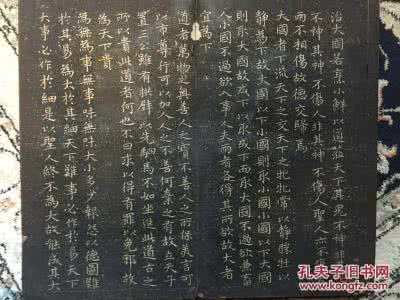 治大國若烹小鮮以道莅天下其鬼不神
不神其神不傷人非其神不傷人聖人亦不
兩不相傷故德交歸焉
大國者下流天下之交天下之牝牝常以靜勝牡以
靜為下故大國以下小國則取小國小國以下大國
則取大國故或下以取或下而取大國不過欲兼畜
人小國不過欲入事人夫兩者各得其所欲故大者
宜為下
道者萬物之奧善人之寶不善人之所保美言可
以市尊行可以加人人之不善何棄之有故立天子
置三公雖有拱璧以先駟馬不如坐進此道古之
所以貴此道者何也不曰求以得有罪以免邪故
為天下貴
為無為事無事味無味大小多少報怨以德圖難
於其易為大於其細天下難事必作於易天下
大事必作於細是以聖人終不為大故能成其大
孔夫子旧书网